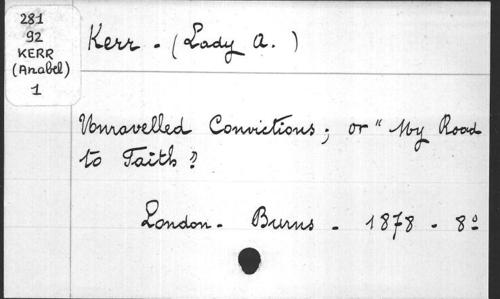 281
92
KERR
(Anabel)
1
Kerr - (Lady A. )
Unravelled Convictions; or "My Road
to Faith"
London - Burns - 1878 - 8º